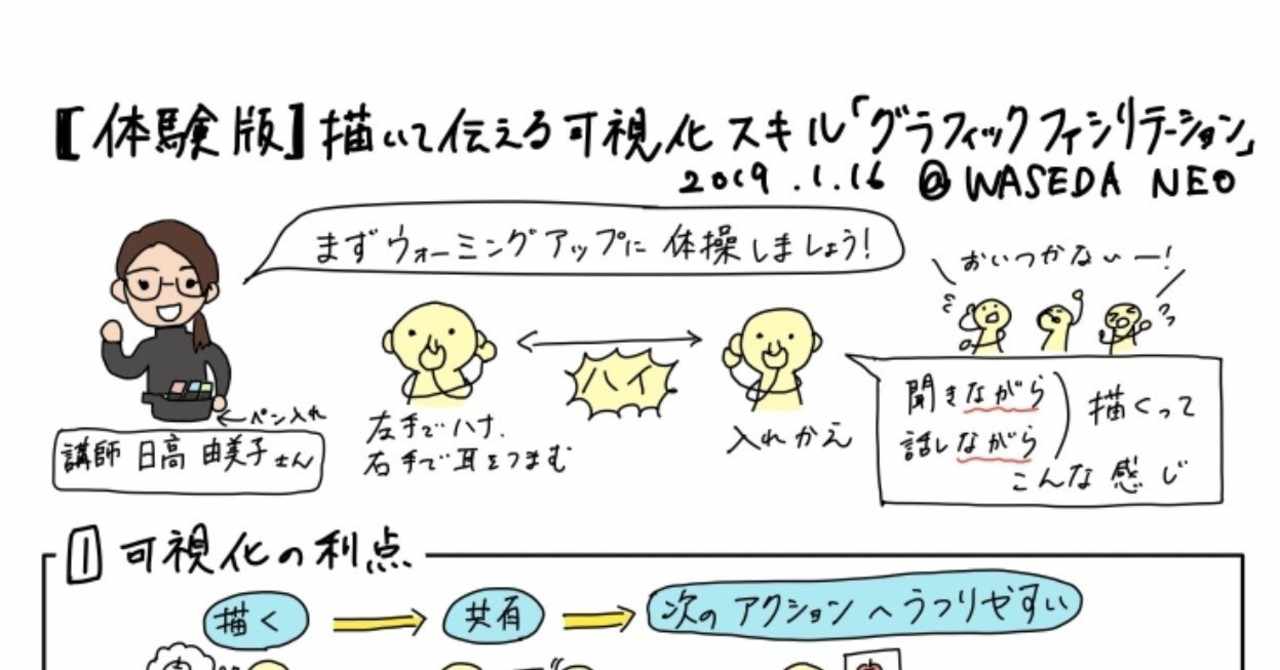 【体験版】描いて伝える可視化スキル「グラフィックファシリテーション」
2019.1.16 @ WASEDA NEO
まずウォーミングアップに体操しましょう!
おいつかないー!
ハイ
ペン入れ
講師 日高 由美子さん
左手でハナ、
右手で耳をつまむ
入れかえ
聞きながら
話しながら
描くって
こんな感じ
1 可視化の利点
描く
共有
次のアクションへうつりやすい